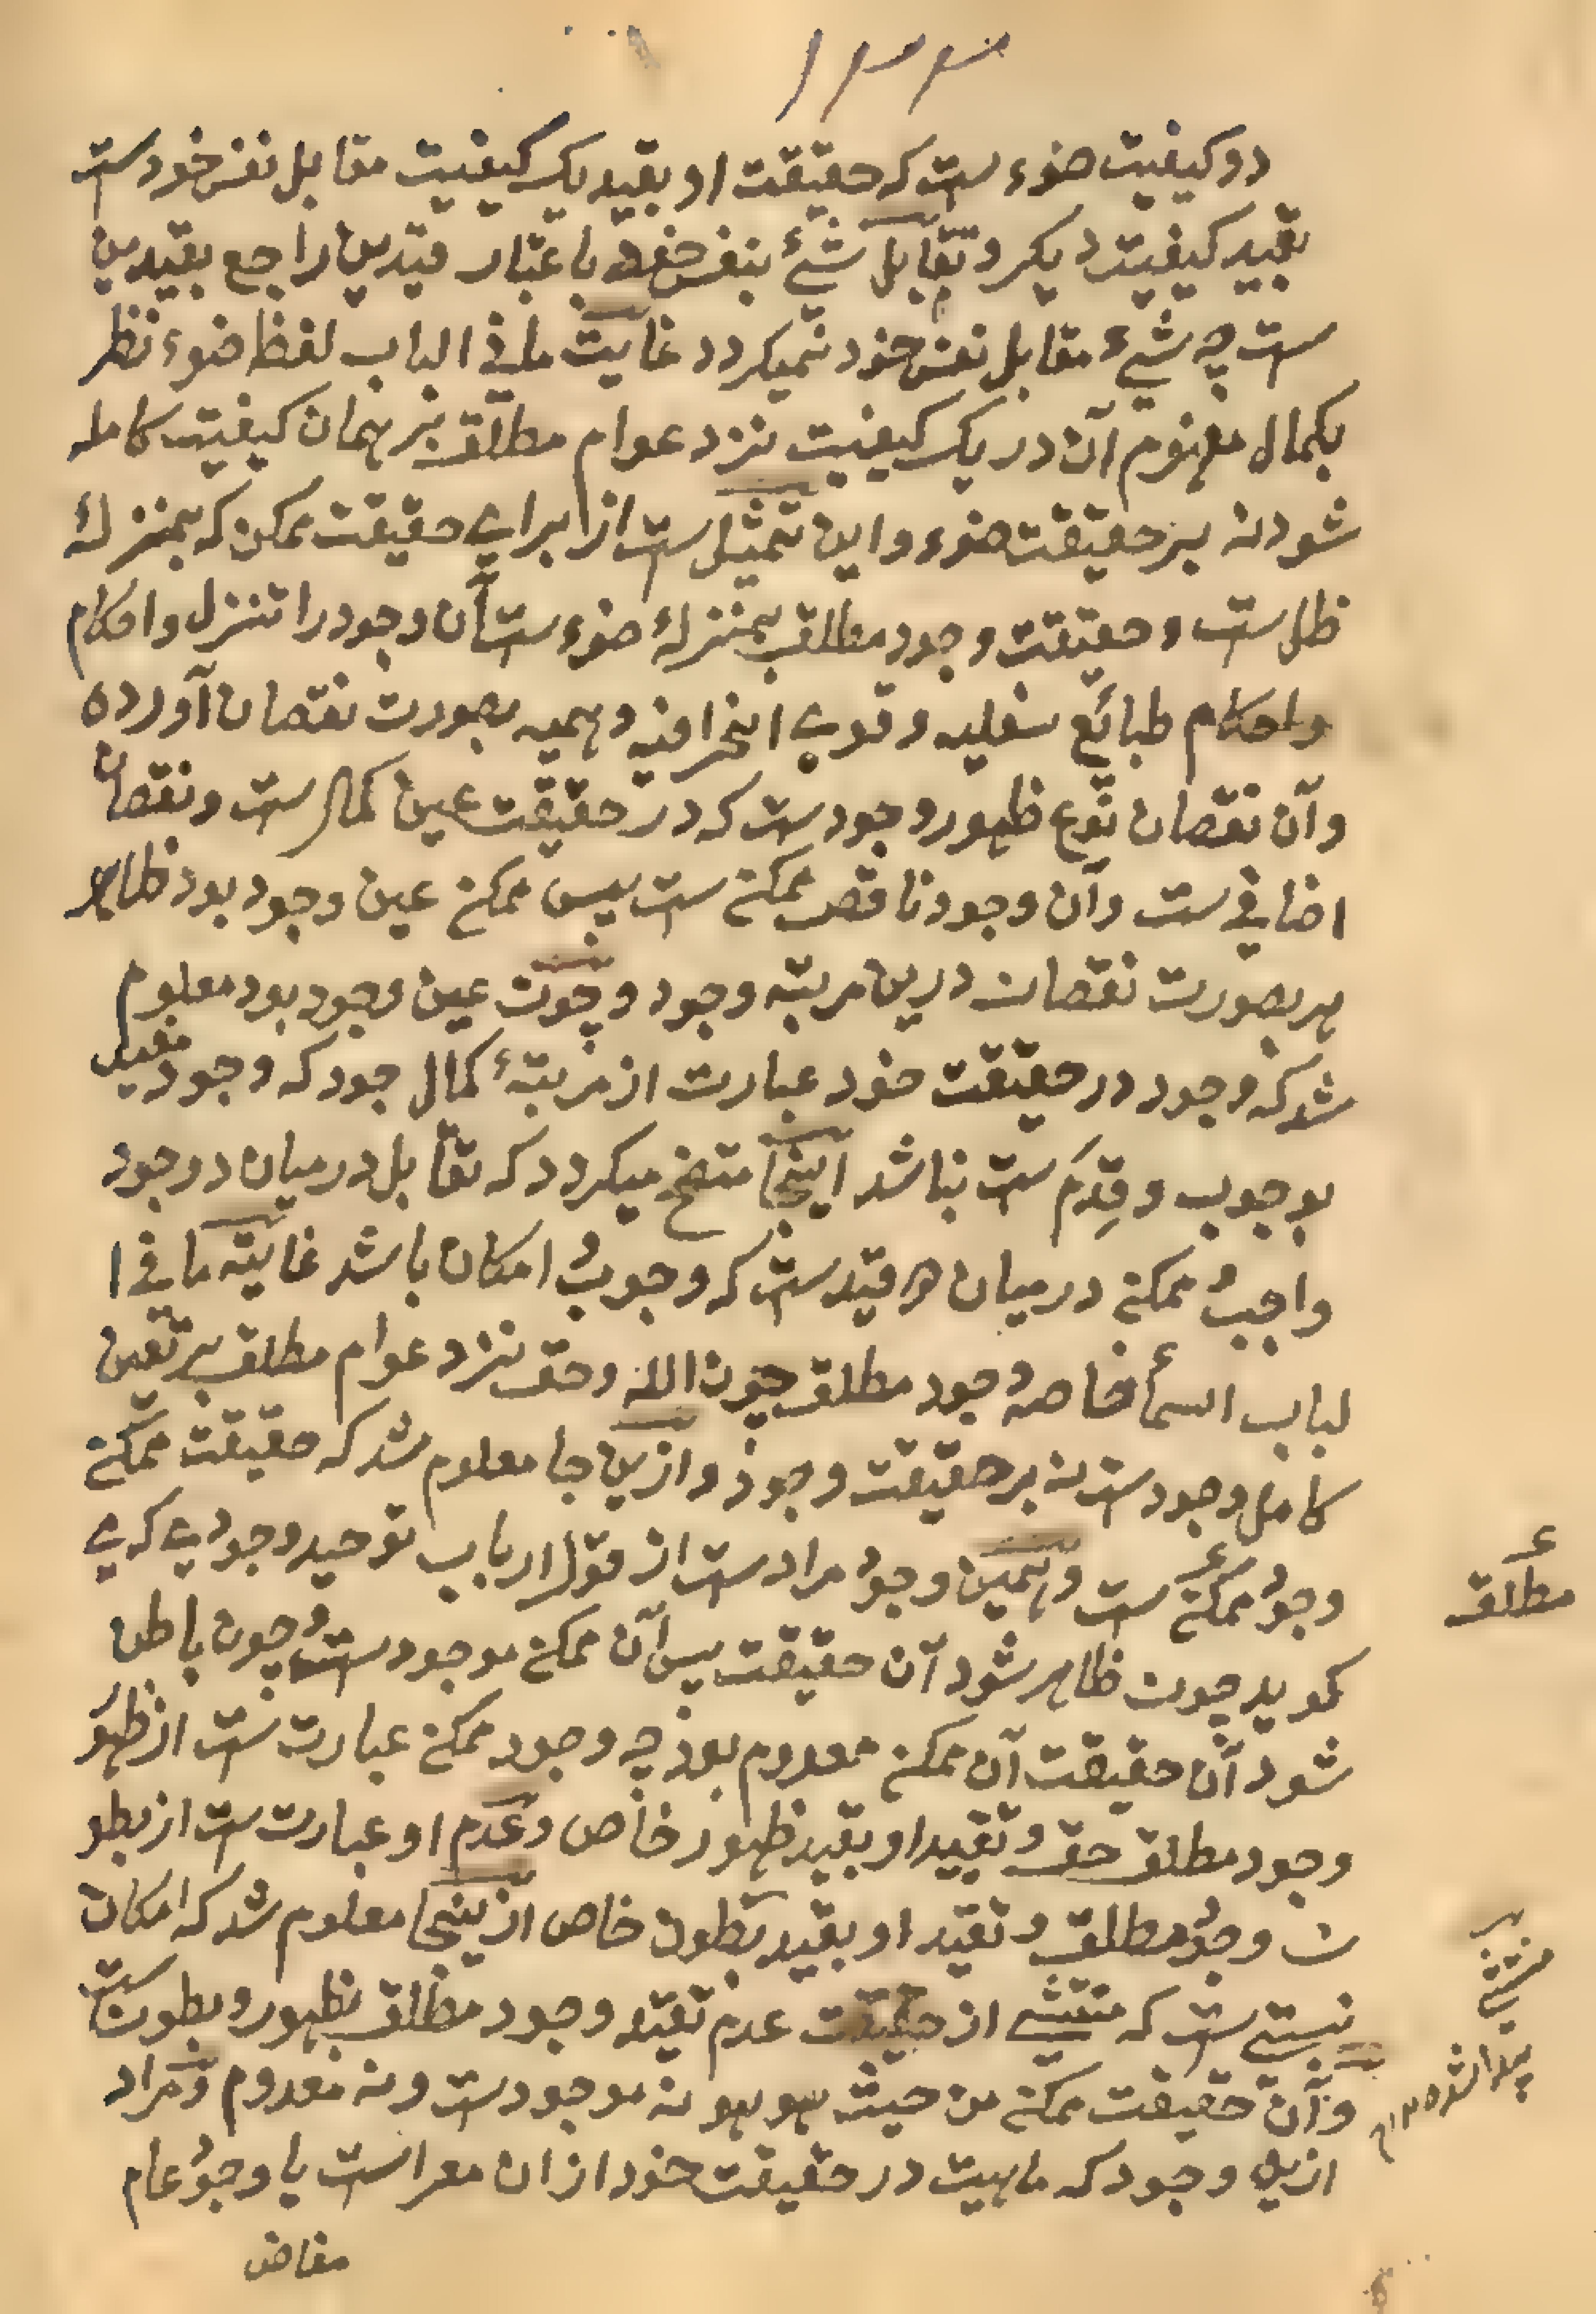 ۱۳۳
دو کیفیت ضوء ست که حقیقت او بقید یک کیفیت مقابل نفس خودست
بقید کیفیت دیگر و تقابل شیٔ بنفس خود باعتبار قیدین راجع بقیدین
ست چه شیٔ مقابل نفس خود نمیگردد غایت مافی الباب لفظ ضوء نظر
بکمال مفهوم آن در یک کیفیت نزد عوام مطلق بر همان کیفیت کامله
شود نه بر حقیقت ضوء و این تمثیل ست از برای حقیقت ممکن که بمنزلهٔ
ظل ست و حقیقت وجود مطلق بمنزلهٔ ضوء ست آن وجود را تنزل و احکام
واحکام طبائع سفلیه و قوی انحرافیه وهمیه بصورت نقصان آورده
و آن نقصان نوع ظهور وجودست که در حقیقت عین کمال ست و نقصان
اضافی ست و آن وجود ناقص ممکن ست پس ممکن عین وجود بود ظاهر
بر بصورت نقصان درین مرتبه وجود و چون عین وجود بود معلوم
شد که وجود در حقیقت خود عبارت از مرتبهٔ کمال جود که وجود مقید
بوجوب و قِدَم ست نباشد اینجا متضح میگردد که تقابل درمیان دو وجود
واجب و ممکن درمیان دو قیدست که وجوب و امکان باشد غایته مافی ا
لباب اسمأ خاصه وجود مطلق چون الله و حق نزد عوام مطلق بر تعین
کامل وجودست نه بر حقیقت وجود و ازین جا معلوم شد که حقیقت ممکن
وجود ممکن ست و همین وجود مرادست از قول ارباب توحید وجودی که می
گوید چون ظاهر شود آن حقیقت پس آن ممکن موجودست و چون باطن
شود آن حقیقت آن ممکن معدوم بود چه وجود ممکن عبارت ست از ظهور
وجود مطلق حق و تقیید او بقید ظهور خاص و عدم او عبارت ست از بطو
ن وجود مطلق و تقید او بقید بطون خاص ازینجا معلوم شد که امکان
نسبتی ست که منتشی از حقیقت عدم تقید وجود مطلق بظهور و بطون ست
و آن حقیقت ممکن من حیث هو هو نه موجودست و نه معدوم و مراد
ازین وجود که ماهیت در حقیقت خود از ان معراست یا وجود عام
مفاض
مطلق
منتشی
پیدا شده ۱۲